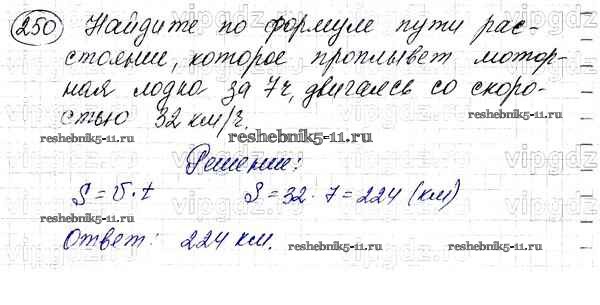 250 Найдите по формуле пути рас-
стояние, которое проплывет мотор-
ная лодка за 7ч, двигаясь со скоро-
стью 32 км/ч.
reshebnik5-11.ru reshebnik5-11.ru reshebnik5-11.ru
Решение:
S = v · t S = 32 · 7 = 224 (км)
reshebnik5-11.ru reshebnik5-11.ru
Ответ: 224 км.
reshebnik5-11.ru reshebnik5-11.ru
vipgdz